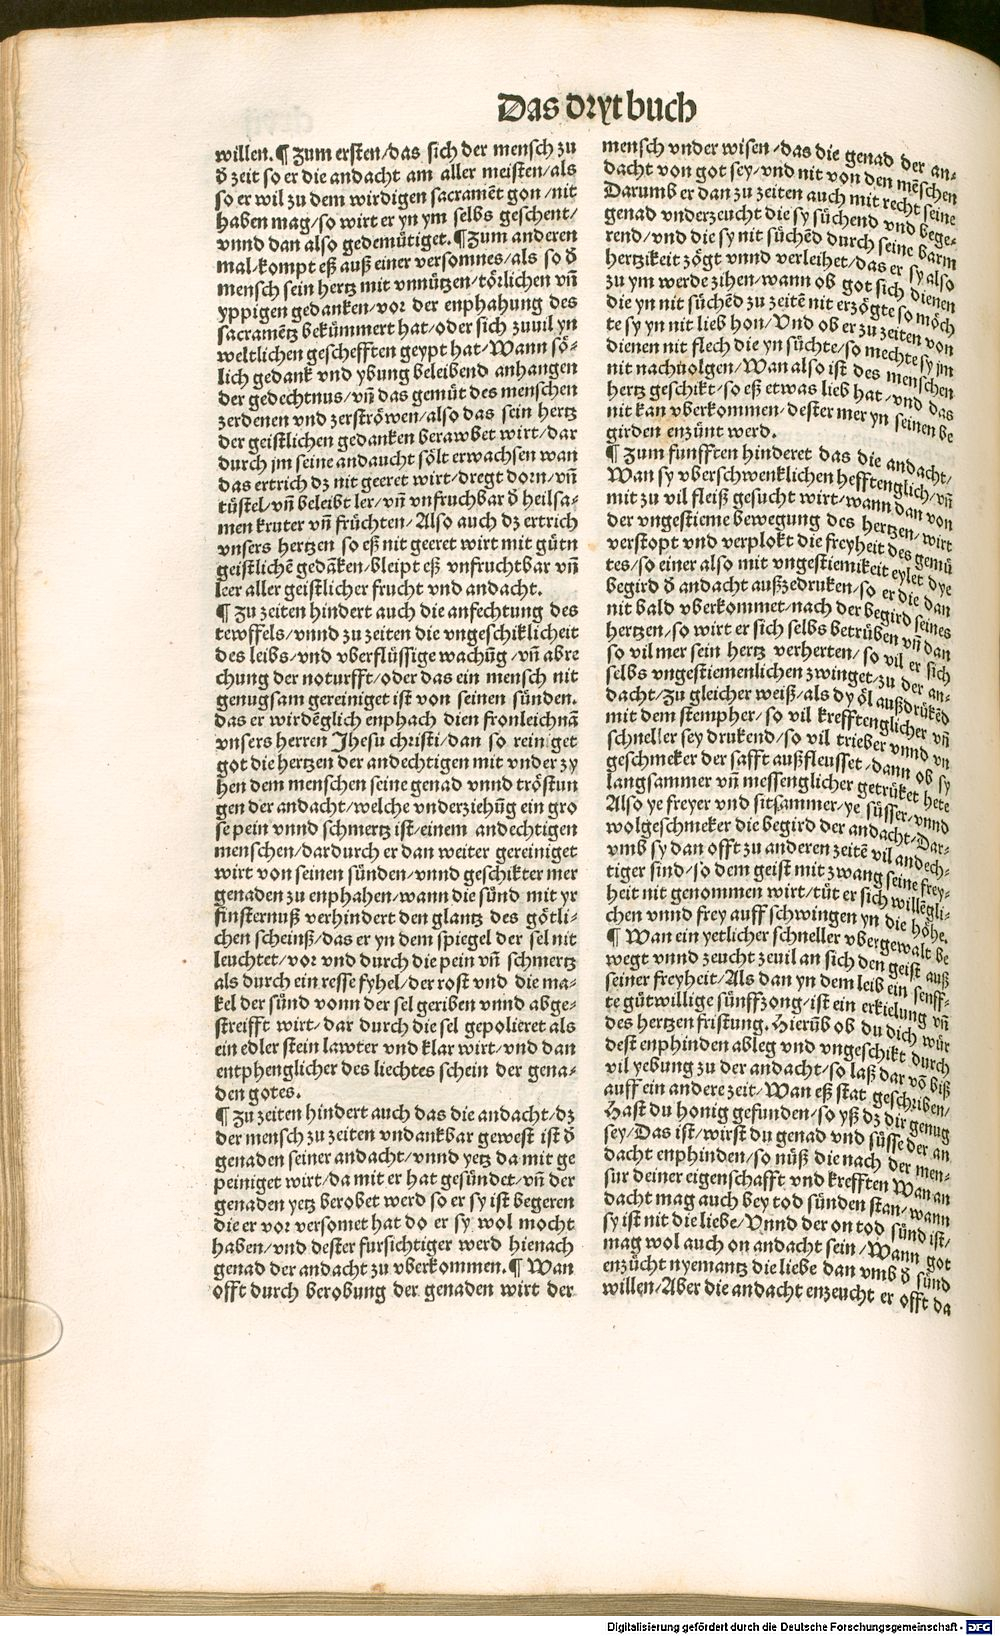 Das dryt buch
willen. ¶ Zum ersten/das sich der mensch zu
d̄ zeit so er die andacht am aller meisten/als
so er wil zu dem wirdigen sacramēt gon/nit
haben mag/so wirt er yn ym selbs geschent/
vnnd dan also gedemütiget. ¶ Zum anderen
mal/kompt eß auß einer versomnes/als so d̄
mensch sein hertz mit vnnützen/törlichen vn̄
yppigen gedanken/vor der enphahung des
sacramētz bekümmert hat/oder sich zuuil yn
weltlichen geschefften geypt hat/Wann sö⸗
lich gedank vnd ybung beleibend anhangen
der gedechtnus/vn̄ das gemüt des menschen
zerdenen vnd zerströwen/also das sein hertz
der geistlichen gedanken berawbet wirt/dar
durch jm seine andaucht sölt erwachsen wan
das ertrich dz nit geeret wirt/dregt dorn/vn̄
tüstel/vn̄ beleibt ler/vn̄ vnfruchbar d̄ heilsa⸗
men kruter vn̄ früchten/Also auch dz ertrich
vnsers hertzen so eß nit geeret wirt mit gūtn
geistlichē gedāken/bleipt eß vnfruchtbar vn̄
leer aller geistlicher frucht vnd andacht.
¶ Zu zeiten hindert auch die anfechtung des
tewffels/vnnd zu zeiten die vngeschiklicheit
des leibs/vnd vberflüssige wachūg/vn̄ abre
chung der noturfft/oder das ein mensch nit
genugsam gereiniget ist von seinen sünden.
das er wirdēglich enphach dien fronleichnā
vnsers herren Jhesu christi/dan so reiniget
got die hertzen der andechtigen mit vnder zy
hen dem menschen seine genad vnnd tröstun
gen der andacht/welche vnderziehūg ein gro
se pein vnnd schmertz ist/einem andechtigen
menschen/dardurch er dan weiter gereiniget
wirt von seinen sünden/vnnd geschikter mer
genaden zu enphahen/wann die sünd mit yr
finsternuß verhindert den glantz des götli⸗
chen scheinß/das er yn dem spiegel der sel nit
leuchtet/vor vnd durch die pein vn̄ schmertz
als durch ein resse fyhel/der rost vnd die ma⸗
kel der sünd vonn der sel geriben vnnd abge⸗
streifft wirt/dar durch die sel gepolieret als
ein edler stein lawter vnd klar wirt/vnd dan
entphenglicher des liechtes schein der gena⸗
den gotes.
¶ Zu zeiten hindert auch das die andacht/dz
der mensch zu zeiten vndankbar gewest ist d̄
genaden seiner andacht/vnnd yetz da mit ge
peiniget wirt/da mit er hat gesündet/vn̄ der
genaden yetz berobet werd so er sy ist begeren
die er vor versomet hat do er sy wol mocht
haben/vnd dester fursichtiger werd hienach
genad der andacht zu vberkommen. ¶ Wan
offt durch berobung der genaden wirt der
mensch vnder wisen/das die genad der an⸗
dacht von got sey/vnd nit von den mēschen
Darumb er dan zu zeiten auch mit recht seine
genad vnderzeucht die sy süchend vnd bege⸗
rend/vnd die sy nit süchēd durch seine barm
hertzikeit zögt vnnd verleihet/das er sy also
zu ym werde zihen/wann ob got sich dienen
die yn nit süchēd zu zeitē nit erzögte so möch
te sy yn nit lieb hon/Vnd ob er zu zeiten von
dienen nit flech die yn süchte/so mechte sy jm
nit nachuolgen/Wan also ist des menschen
hertz geschikt/so eß etwas lieb hat/vnd das
nit kan vberkommen/dester mer yn seinen be
girden enzünt werd.
¶ Zum funfften hinderet das die andacht/
Wan sy vberschwenklichen hefftenglich/vn̄
mit zu vil fleiß gesucht wirt/wann dan von
der vngestieme bewegung des hertzen/wirt
verstopt vnd verplokt die freyheit des gemü
tes/so einer also mit vngestiemikeit eylet dye
begird d̄ andacht außzedruken/so er die dan
nit bald vberkommet/nach der begird seines
hertzen/so wirt er sich selbs betrüben vn̄ dan
so vil mer sein hertz verherten/so vil er sich
selbs vngestiemenlichen zwinget/zu der an⸗
dacht/Zu gleicher weiß/als dy öl außdrükēd
mit dem stempher/so vil krefftenglicher vn̄
schneller sey drukend/so vil trieber vnnd vn
geschmeker der safft außfleusset/dann ob sy
langsammer vn̄ messenglicher getrüket hete
Also ye freyer vnd sitsammer/ye süsser/vnnd
wolgeschmeker die begird der andacht/Dar⸗
vmb sy dan offt zu anderen zeitē vil andech⸗
tiger sind/so dem geist mit zwang seine frey⸗
heit nit genommen wirt/tüt er sich willēgli⸗
chen vnnd frey auff schwingen yn die höhe.
¶ Wan ein yetlicher schneller vbergewalt be
wegt vnnd zeucht zeuil an sich den geist auß
seiner freyheit/Als dan yn dem leib ein senff⸗
te gütwillige sünffzong/ist ein erkielung vn̄
des hertzen fristung. Hierūb ob du dich wür
dest enphinden ableg vnd vngeschikt durch
vil yebung zu der andacht/so laß dar vō biß
auff ein andere zeit/Wan eß stat geschriben/
Hast du honig gefunden/so yß dz dir genug
sey/Das ist/wirst du genad vnd süsse der an
dacht enphinden/so nüß die nach der men⸗
sur deiner eigenschafft vnd krefften Wan an
dacht mag auch bey tod sünden stan/wann
sy ist nit die liebe/Vnnd der on tod sünd ist/
mag wol auch on andacht sein/Wann got
enzücht nyemantz die liebe dan vmb d̄ sünd
willen/Aber die andacht enzeucht er offt da
Digitalisierung gefördert durch die Deutsche Forschungsgemeinschaft - DFG